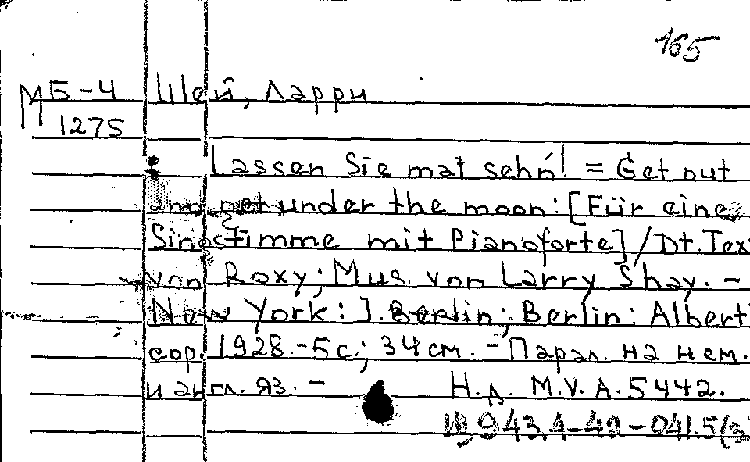 165
М Б-4 Шей, Ларри
1275
Lassen Sie mal sehn! = Get out
and get under the moon: [Für eine
Singstimme mit Pianoforte] / Dt. Tex
von Roxy; Mus. von Larry Shay. –
New York: I. Berlin; Berlin: Albert
cop. 1928. – 5 с.; 34 см. – Парал. на нем.
и англ. яз. – Н.д. M.V.A. 5442.